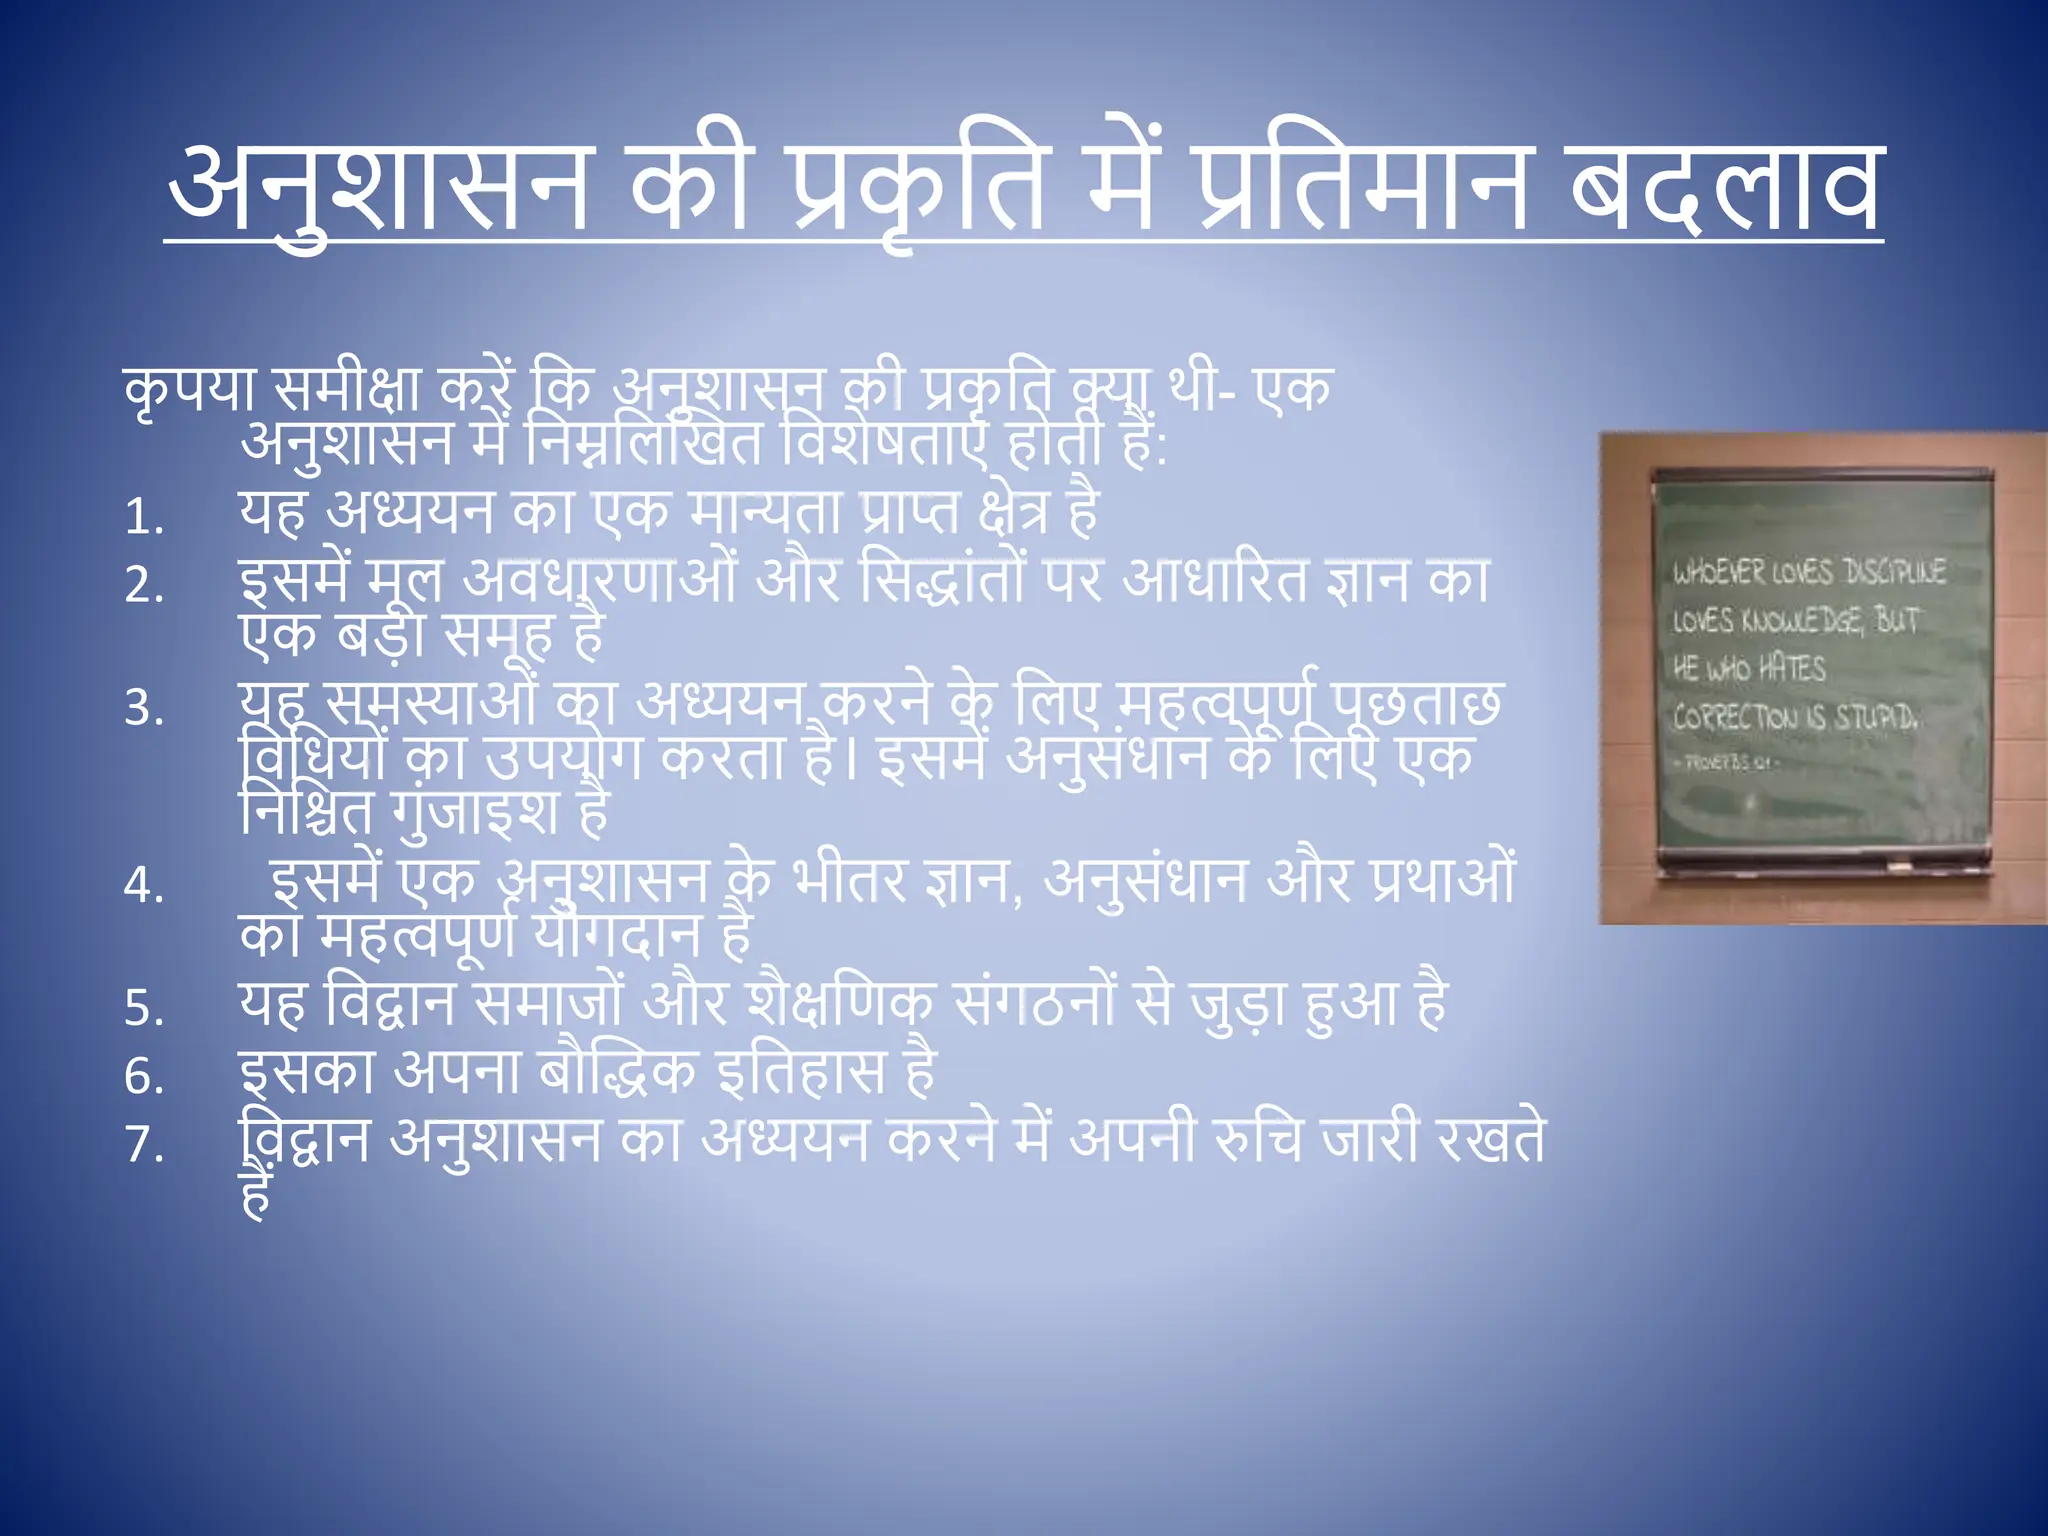 अनुशासन की प्रकृति में प्रतिमान बदलाव
कृपया समीक्षा करें कि अनुशासन की प्रकृति क्या थी- एक
अनुशासन में निम्नलिखित विशेषताएं होती हैं:
1. यह अध्ययन का एक मान्यता प्राप्त क्षेत्र है
2. इसमें मूल अवधारणाओं और सिद्धांतों पर आधारित ज्ञान का
एक बड़ा समूह है
3. यह समस्याओं का अध्ययन करने के लिए महत्वपूर्ण पूछताछ
विधियों का उपयोग करता है। इसमें अनुसंधान के लिए एक
निश्चित गुंजाइश है
4. इसमें एक अनुशासन के भीतर ज्ञान, अनुसंधान और प्रथाओं
का महत्वपूर्ण योगदान है
5. यह विद्वान समाजों और शैक्षणिक संगठनों से जुड़ा हुआ है
6. इसका अपना बौद्धिक इतिहास है
7. विद्वान अनुशासन का अध्ययन करने में अपनी रुचि जारी रखते
हैं
WHOEVER LOVES DISCIPLINE
LOVES KNOWLEDGE, BUT
HE WHO HATES
CORRECTION IS STUPID.
- PROVERBS 12:1 -